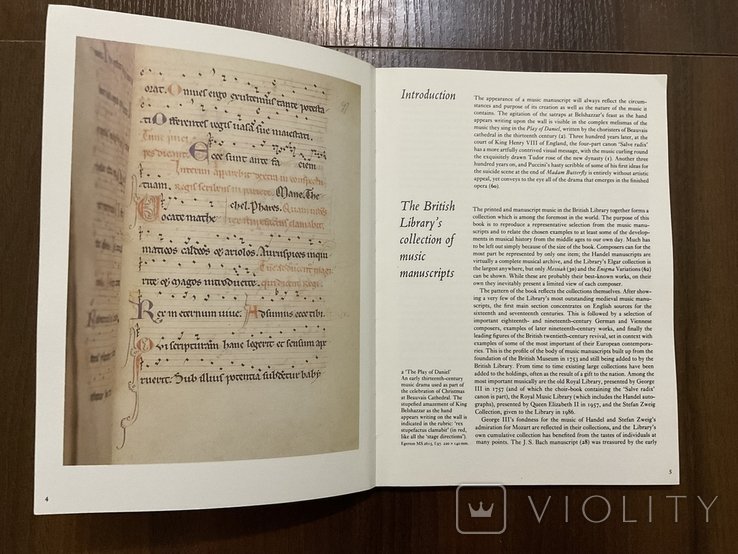 orat. Omnes ergo exultemus tante potesta
ti. Offerentes vegis uasa sue maiestati.
Tunc principes dicent.
Ecce sunt ante faciem
Interim apparebit dextra in conspectu
tuam. Regis scribens in pariete. Mane. The
chel. Phares.
Vocate mathe Stupefactus clamabit.
maticos caldeos et ariolos. Auruspices inqui
rite et magos introducite.
Rex in eternum uiue. Assumus ecce tibi.
Qui scripturam hanc legerit et sensum ape
ruerit. Sub illius potentia subdetur baby
4
Introduction
The appearance of a music manuscript will always reflect the circum-
stances and purpose of its creation as well as the nature of the music it
contains. The agitation of the satraps at Belshazzar's feast as the hand
appears writing upon the wall is visible in the complex melismas of the
music they sing in the Play of Daniel, written by the choristers of Beauvais
cathedral in the thirteenth century (2). Three hundred years later, at the
court of King Henry VIII of England, the four-part canon 'Salve radix'
has a more artfully contrived visual message, with the music curling round
the exquisitely drawn Tudor rose of the new dynasty (1). Another three
hundred years on, and Puccini's hasty scribble of some of his first ideas for
the suicide scene at the end of Madam Butterfly is entirely without artistic
appeal, yet conveys to the eye all of the drama that emerges in the finished
opera (60).
The British
Library's
collection of
music
manuscripts
The printed and manuscript music in the British Library together forms a
collection which is among the foremost in the world. The purpose of this
book is to reproduce a representative selection from the music manu-
scripts and to relate the chosen examples to at least some of the develop-
ments in musical history from the middle ages to our own day. Much has
to be left out simply because of the size of the book. Composers can for the
most part be represented only by one item; the Handel manuscripts are
virtually a complete musical archive, and the Library's Elgar collection is
the largest anywhere, but only Messiah (30) and the Enigma Variations (62)
can be shown. While these are probably their best-known works, on their
own they inevitably present a limited view of each composer.
The pattern of the book reflects the collections themselves. After show-
ing a very few of the Library's most outstanding medieval music manu-
scripts, the first main section concentrates on English sources for the
sixteenth and seventeenth centuries. This is followed by a selection of
important eighteenth- and nineteenth-century German and Viennese
composers, examples of later nineteenth-century works, and finally the
leading figures of the British twentieth-century revival, set in context with
examples of some of the most important of their European contempora-
ries. This is the profile of the body of music manuscripts built up from the
foundation of the British Museum in 1753 and still being added to by the
British Library. From time to time existing large collections have been
added to the holdings, often as the result of a gift to the nation. Among the
most important musically are the old Royal Library, presented by George
II in 1757 (and of which the choir-book containing the 'Salve radix'
canon is part), the Royal Music Library (which includes the Handel auto-
graphs), presented by Queen Elizabeth II in 1957, and the Stefan Zweig
Collection, given to the Library in 1986.
George III's fondness for the music of Handel and Stefan Zweig's
admiration for Mozart are reflected in their collections, and the Library's
own cumulative collection has benefited from the tastes of individuals at
many points. The J.S. Bach manuscript (28) was treasured by the early
2 'The Play of Daniel'
An early thirteenth-century
music drama used as part of
the celebration of Christmas
at Beauvais Cathedral. The
stupefied amazement of King
Belshazzar as the hand
appears writing on the wall is
indicated in the rubric: 'rex
stupefactus clamabit' (in red,
like all the 'stage directions').
Egerton MS 2615, f.97. 220 × 140 mm.
5
VIOLITY